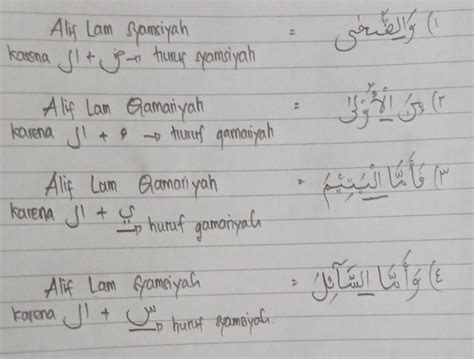 Alif Lam Syamsiyah = ١) وَالضُّحَى
karena ال + ض → huruf syamsiyah
Alif Lam Qamariyah = ٢) مِنَ الْأُوْلَى
karena ال + ء → huruf qamariyah
Alif Lam Qamariyah = ٣) فَأَمَّا الْيَتِيْمَ
karena ال + ي → huruf qamariyah
Alif Lam Syamsiyah = ٤) وَأَمَّا السَّآئِلَ
karena ال + س → huruf syamsiyah.